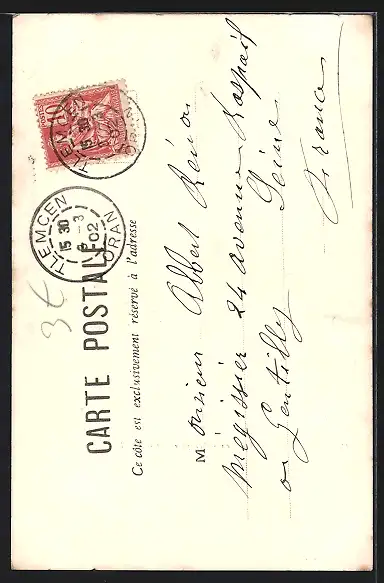 CARTE POSTALE
Ce côté est exclusivement réservé à l'adresse
TLEMCEN
15 30
8 -3
02
ORAN
10
3€
Monsieur Albert Rénon
Mégissier 24 avenue Raspail
à Gentilly Seine
France